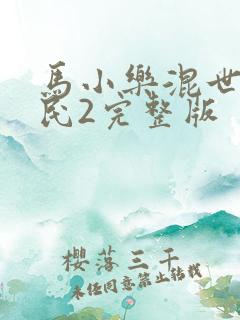 馬小樂混世
民2完整版
櫻落三千
未经同意禁止转载